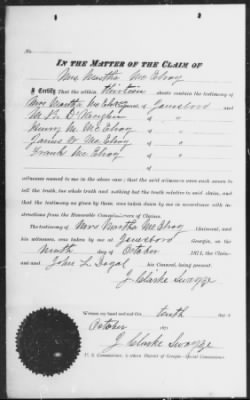 No.
IN THE MATTER OF THE CLAIM OF
Mrs Martha McElroy
I Certify That the within thirteen sheets contain the testimony of
Mrs Martha McElroy of Jonesboro
of "
Henry M. McElroy of "
McElroy of "
Frank McElroy of "
witnesses named to me in the above case; that said witnesses were each sworn to
tell the truth, the whole truth and nothing but the truth relative to said claim, and
that the testimony as given by them, was taken down by me in accordance with in-
structions from the Honorable Commissioners of Claims.
The testimony of Mrs Martha McElroy Claimant, and
his witnesses, was taken by me at Jonesboro Georgia, on the
Ninth day of October 1871, the Claim-
ant and John L. his Counsel, being present.
J Clarke Swayze
Witness my hand and seal this tenth day of
October 187
J Clarke Swayze
U. S. Commissioner, Northern District of Georgia—Special Commissioner.